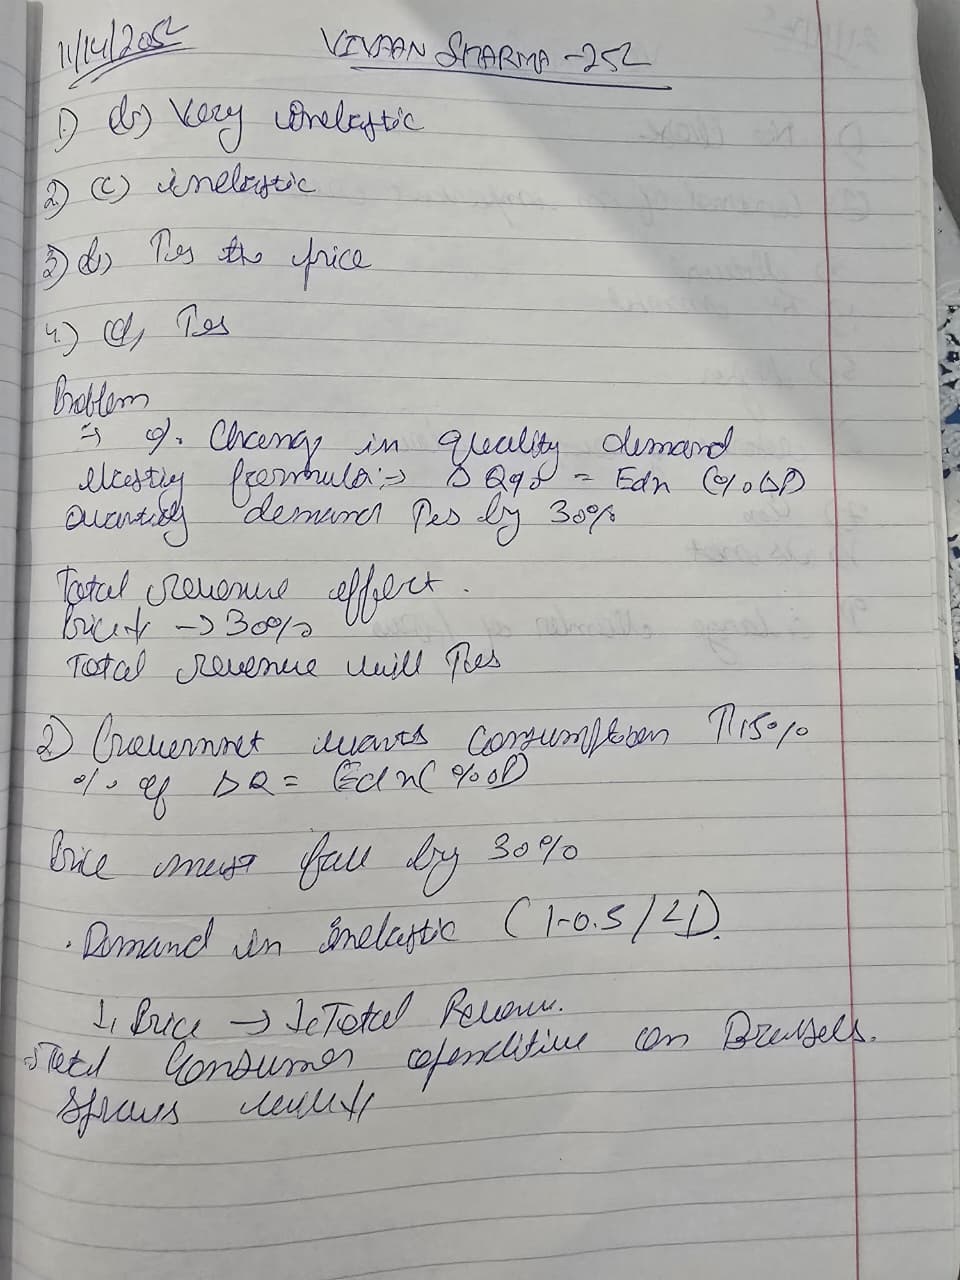 11/14/2052
VIVAAN SHARMA - 252
1) (b) Very inelastic
2) (c) inelastic
3) (b) ↑es the price
4.) (d) ↑es
Problem
⇒ % Change in quality demand
formula :→ Δ Qqd = Ed × (% ΔP)
Quantity demand ↑es by 30%
Total revenue effect.
Price ↓ → 30%
Total revenue will ↑es
2) wants Consumption ↑ 15%
% of ΔQ = Ed × (% ΔP)
Price must fall by 30%
. Demand in inelastic (1-0.5/<1).
↓ Price → ↓ Total Revenue.
→ Total Consumer on Brussels.